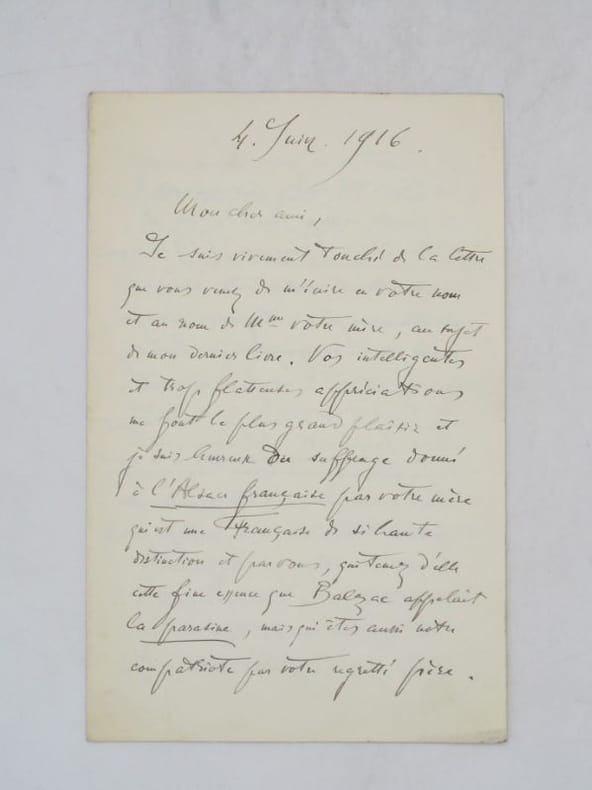 4. Juin. 1916.
Mon cher ami,
Je suis vivement touché de la lettre
que vous venez de m'écrire en votre nom
et au nom de Mme votre mère, au sujet
de mon dernier livre. Vos intelligentes
et trop flatteuses appréciations
me font le plus grand plaisir et
je suis heureux du suffrage donné
à l'Alsace française par votre mère
qui est une Française de si haute
distinction et par vous, qui tenez d'elle
cette fine essence que Balzac appelait
la parisine, mais qui êtes aussi notre
compatriote par votre regretté père.